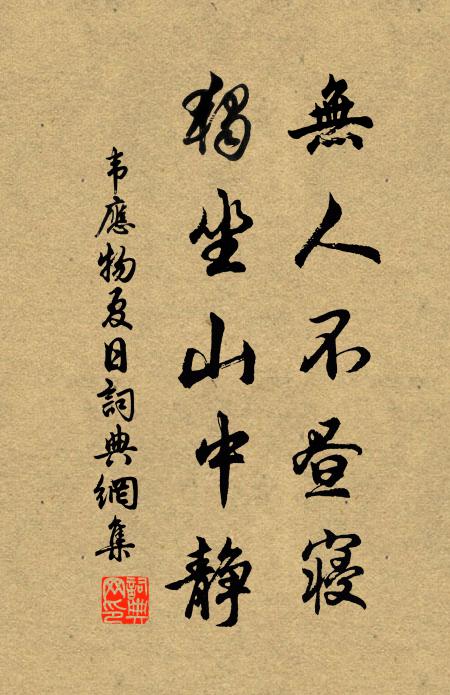 無人不昼寢
獨坐山中静
韦應物夏日詞典網集
詞典
网印